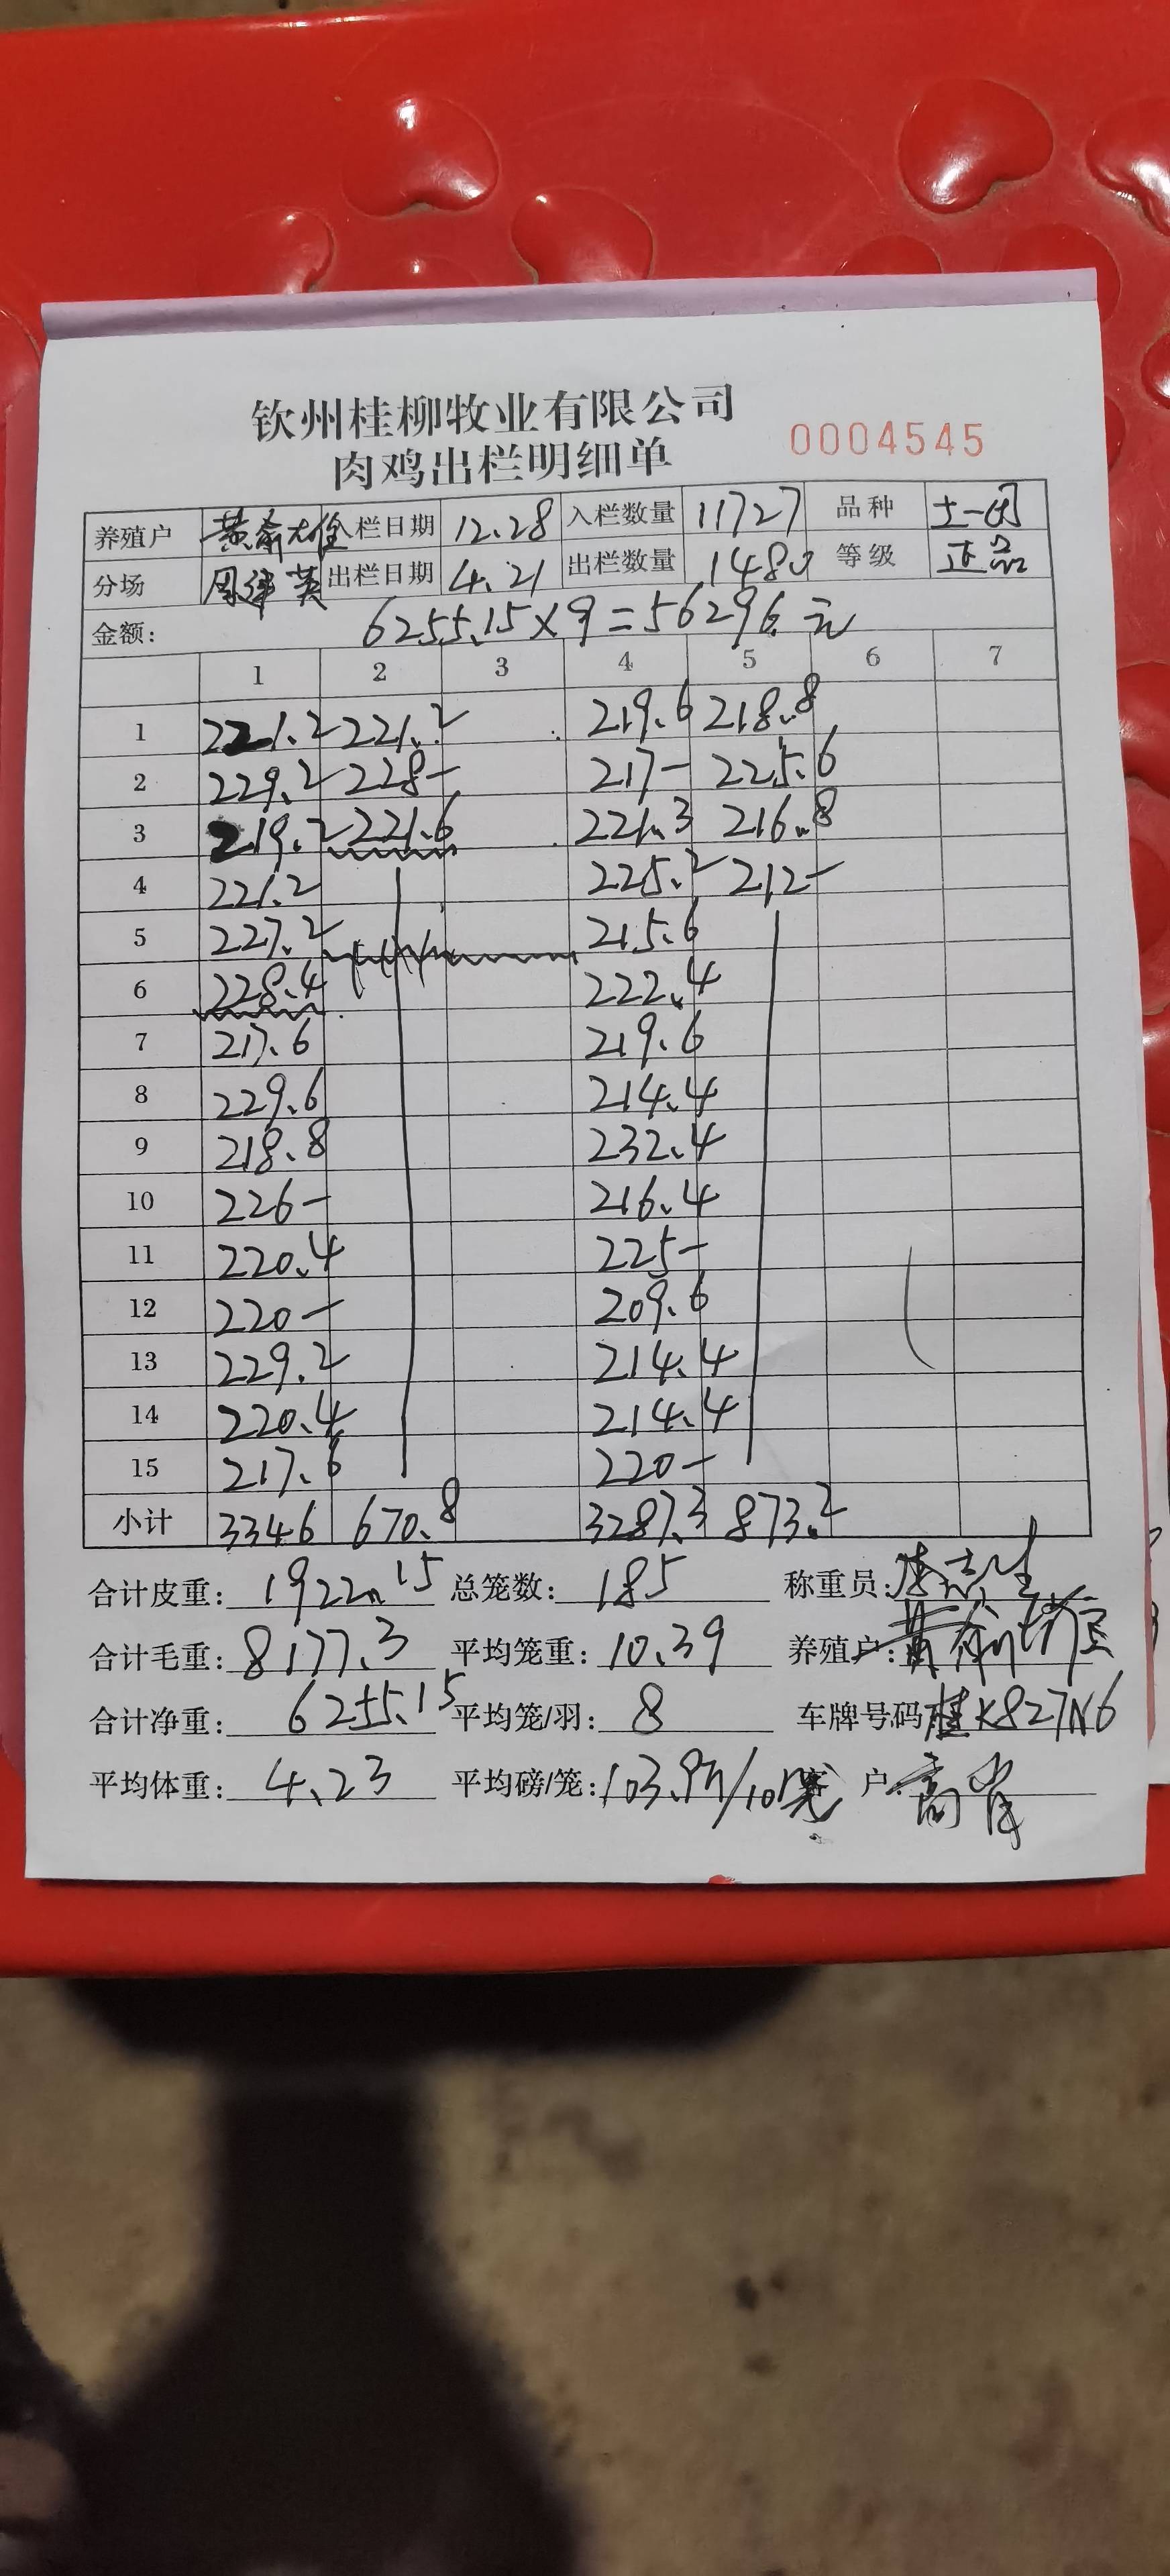 钦州桂柳牧业有限公司
肉鸡出栏明细单 0004545
养殖户 入栏日期 12.28 入栏数量 11727 品种
分场 出栏日期 4.21 出栏数量 1480 等级 正品
金额: 6255.15×9=56296.元
1 2 3 4 5 6 7
1 221.2 221.2 219.6 218.8
2 229.2 228- 217- 225.6
3 219.2 221.6 221.3 216.8
4 221.2 225.2 212-
5 227.2 215.6
6 228.4 222.4
7 217.6 219.6
8 229.6 214.4
9 218.8 232.4
10 226- 216.4
11 220.4 225-
12 220- 209.6
13 229.2 214.4
14 220.4 214.4
15 217.6 220-
小计 3346 670.8 3287.3 873.2
合计皮重: 1922.15 总笼数: 185 称重员:
合计毛重: 8177.3 平均笼重: 10.39 养殖户:
合计净重: 6255.15 平均笼/羽: 8 车牌号码 桂K827N6
平均体重: 4.23 平均磅/笼: 103.9 户: